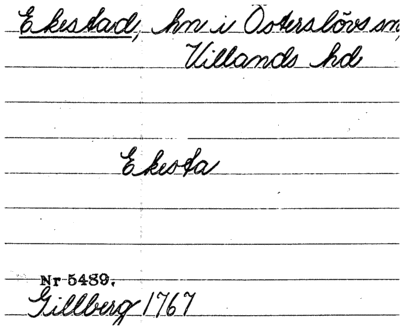 Ekestad, hn i Österslövs sn,
Villands hd
Ekesta
Nr 5489.
Gillberg 1767